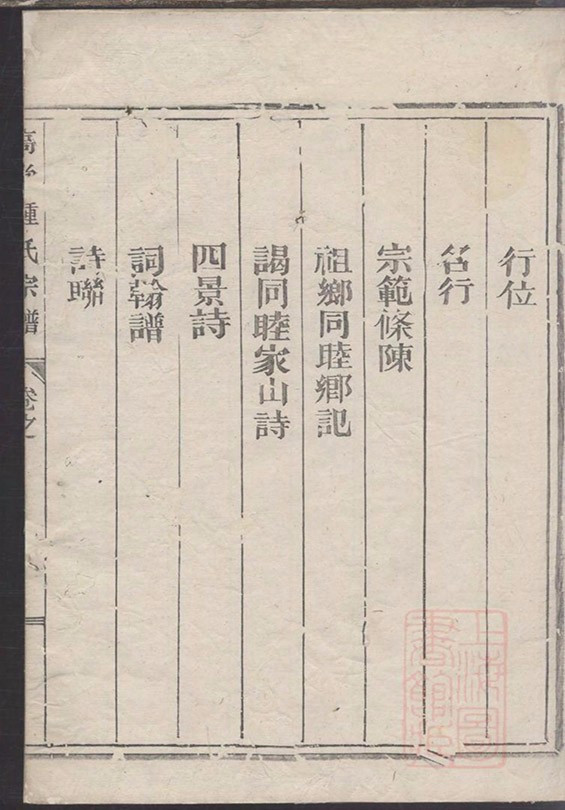 行位
名行
宗範條陳
祖鄉同睦鄉記
謁同睦家山詩
四景詩
詞翰譜
詩聯
鍾氏宗譜
卷之
上海圖書館藏